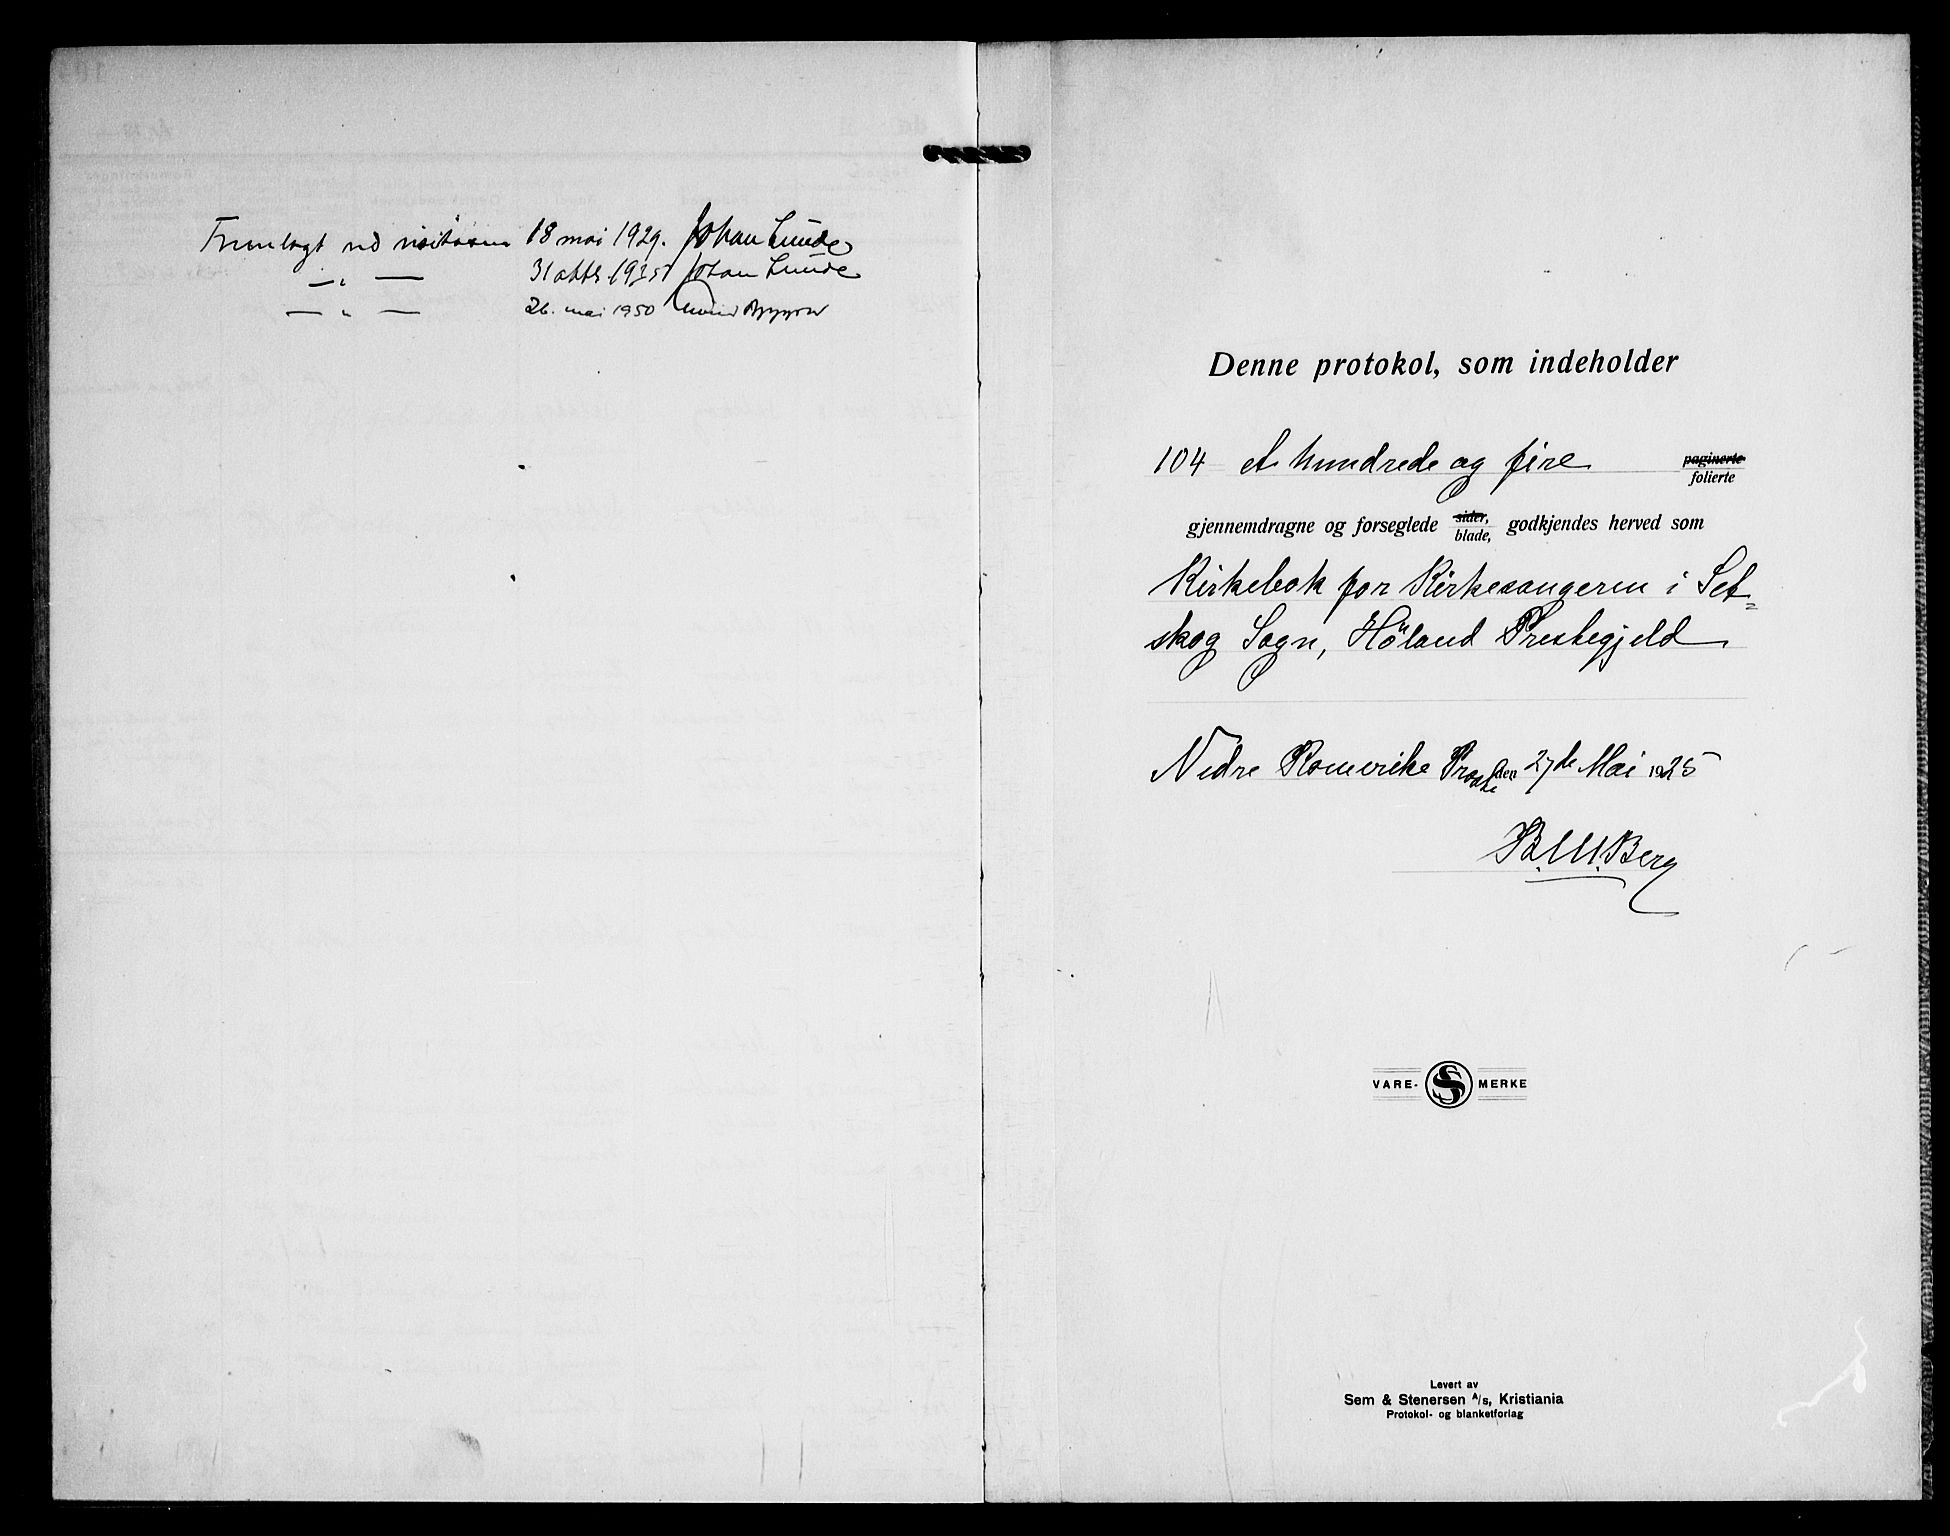 Fremlagt ved visitasen 18 mai 1929. Johan Lunde
— „ — 31 oktb. 1935 Johan Lunde
— „ — 26. mai 1950
Denne protokol, som indeholder
104 et hundrede og fire paginerte folierte
gjennemdragne og forseglede sider, blade, godkjendes herved som
Kirkebok for Kirkesangeren i Set=
skog Sogn, Höland Prestegjeld.
Nedre Romerike Prosti den 27de Mai 1925
B. M. Berg
VARE- SS MERKE
Levert av
Sem & Stenersen A/s, Kristiania
Protokol- og blanketforlag